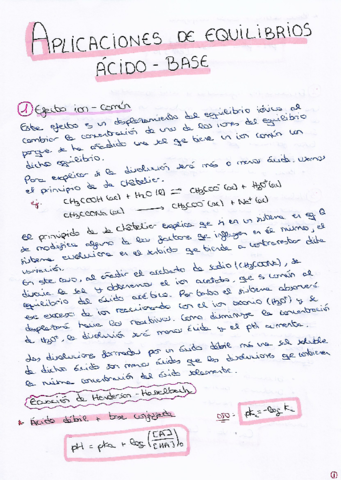 APLICACIONES DE EQUILIBRIOS
ÁCIDO - BASE
1 Efecto ion-común
Este efecto es un desplazamiento del equilibrio iónico al
cambiar la concentración de uno de los iones del equilibrio
porque se ha añadido una sal que tiene un ion común con
dicho equilibrio.
Para explicar si la disolución será más o menos ácida, usamos
el principio de de Châtelier.
ej: CH₃COOH (ac) + H₂O (l) ⇌ CH₃COO⁻ (ac) + H₃O⁺ (ac)
CH₃COONa (ac) → CH₃COO⁻ (ac) + Na⁺ (ac)
El principio de de Châtelier explica que si en un sistema en eq. Q
se modifica alguno de los factores que influyen en el mismo, el
sistema evoluciona en el sentido que tiende a contrarrestar dicha
variación.
En este caso, al añadir el acetato de sodio (CH₃COONa), se
disocia la sal y obtenemos el ion acetato, que es común al
equilibrio del ácido acético. Por tanto el sistema absorverá
ese exceso de ion reaccionando con el ion oxonio (H₃O⁺) y se
desplazará hacia los reactivos. Como disminuye la concentración
de H₃O⁺, la disolución será menos ácida y el pH aumenta.
Las disoluciones formadas por un ácido débil más una sal soluble
de dicho ácido son menos ácidas que las disoluciones que contienen
la misma concentración del ácido solamente.
Ecuación de Henderson - Hasselbach
Ácido débil + base conjugada
pKa = -log Ka
pH = pKa + log ([A⁻]/[HA])₀